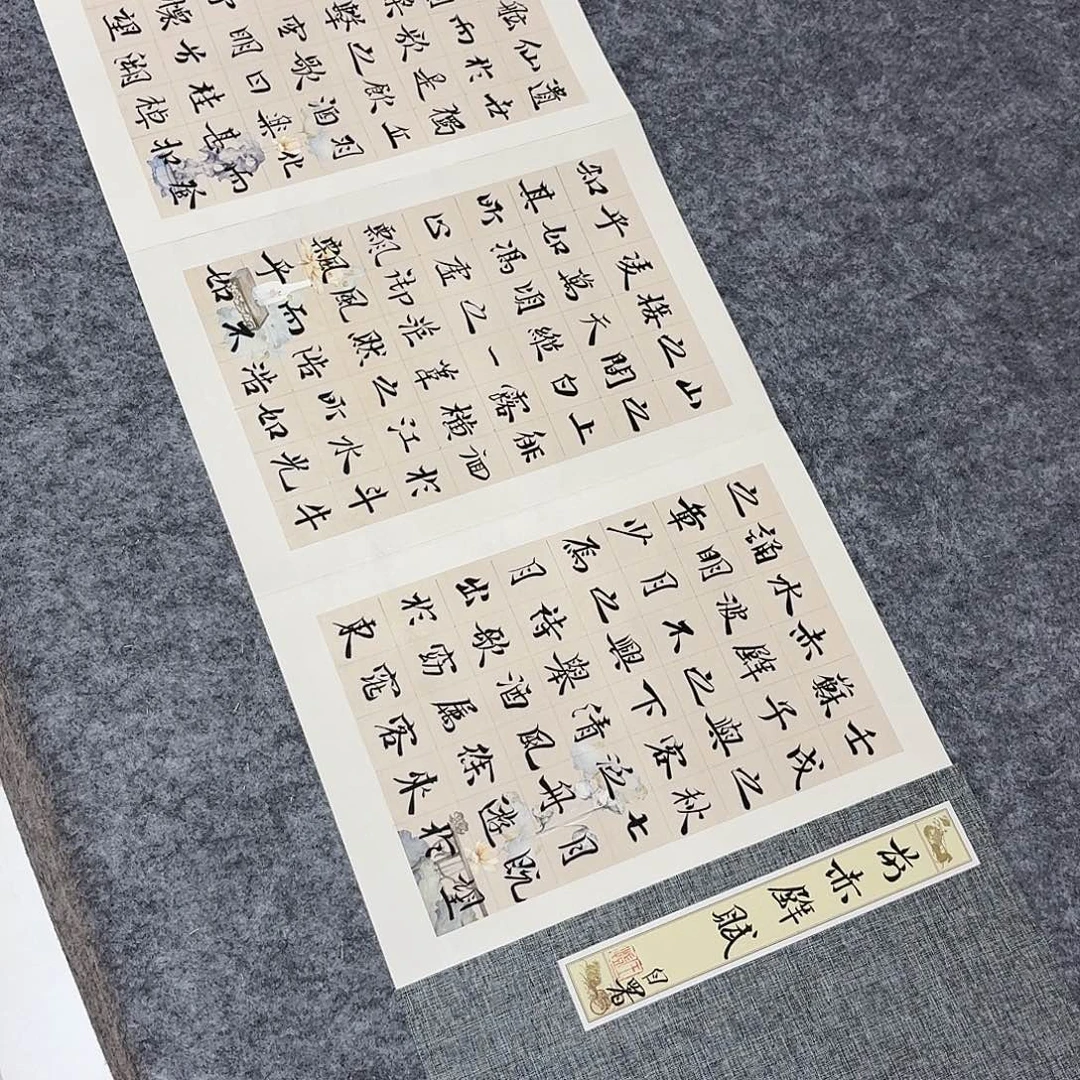 壬戌之秋七月既望
蘇子與客泛舟遊於
赤壁之下清風徐來
水波不興舉酒屬客
誦明月之詩歌窈窕
之章少焉月出於東
山之上徘徊於斗牛
之間白露橫江水光
接天縱一葦之所如
凌萬頃之茫然浩浩
乎如馮虛御風而不
知其所止飄飄乎如
遺世獨立羽化而登
仙於是飲酒樂甚扣
舷而歌之歌曰桂棹
槳擊空明兮溯
予懷望
前赤壁賦